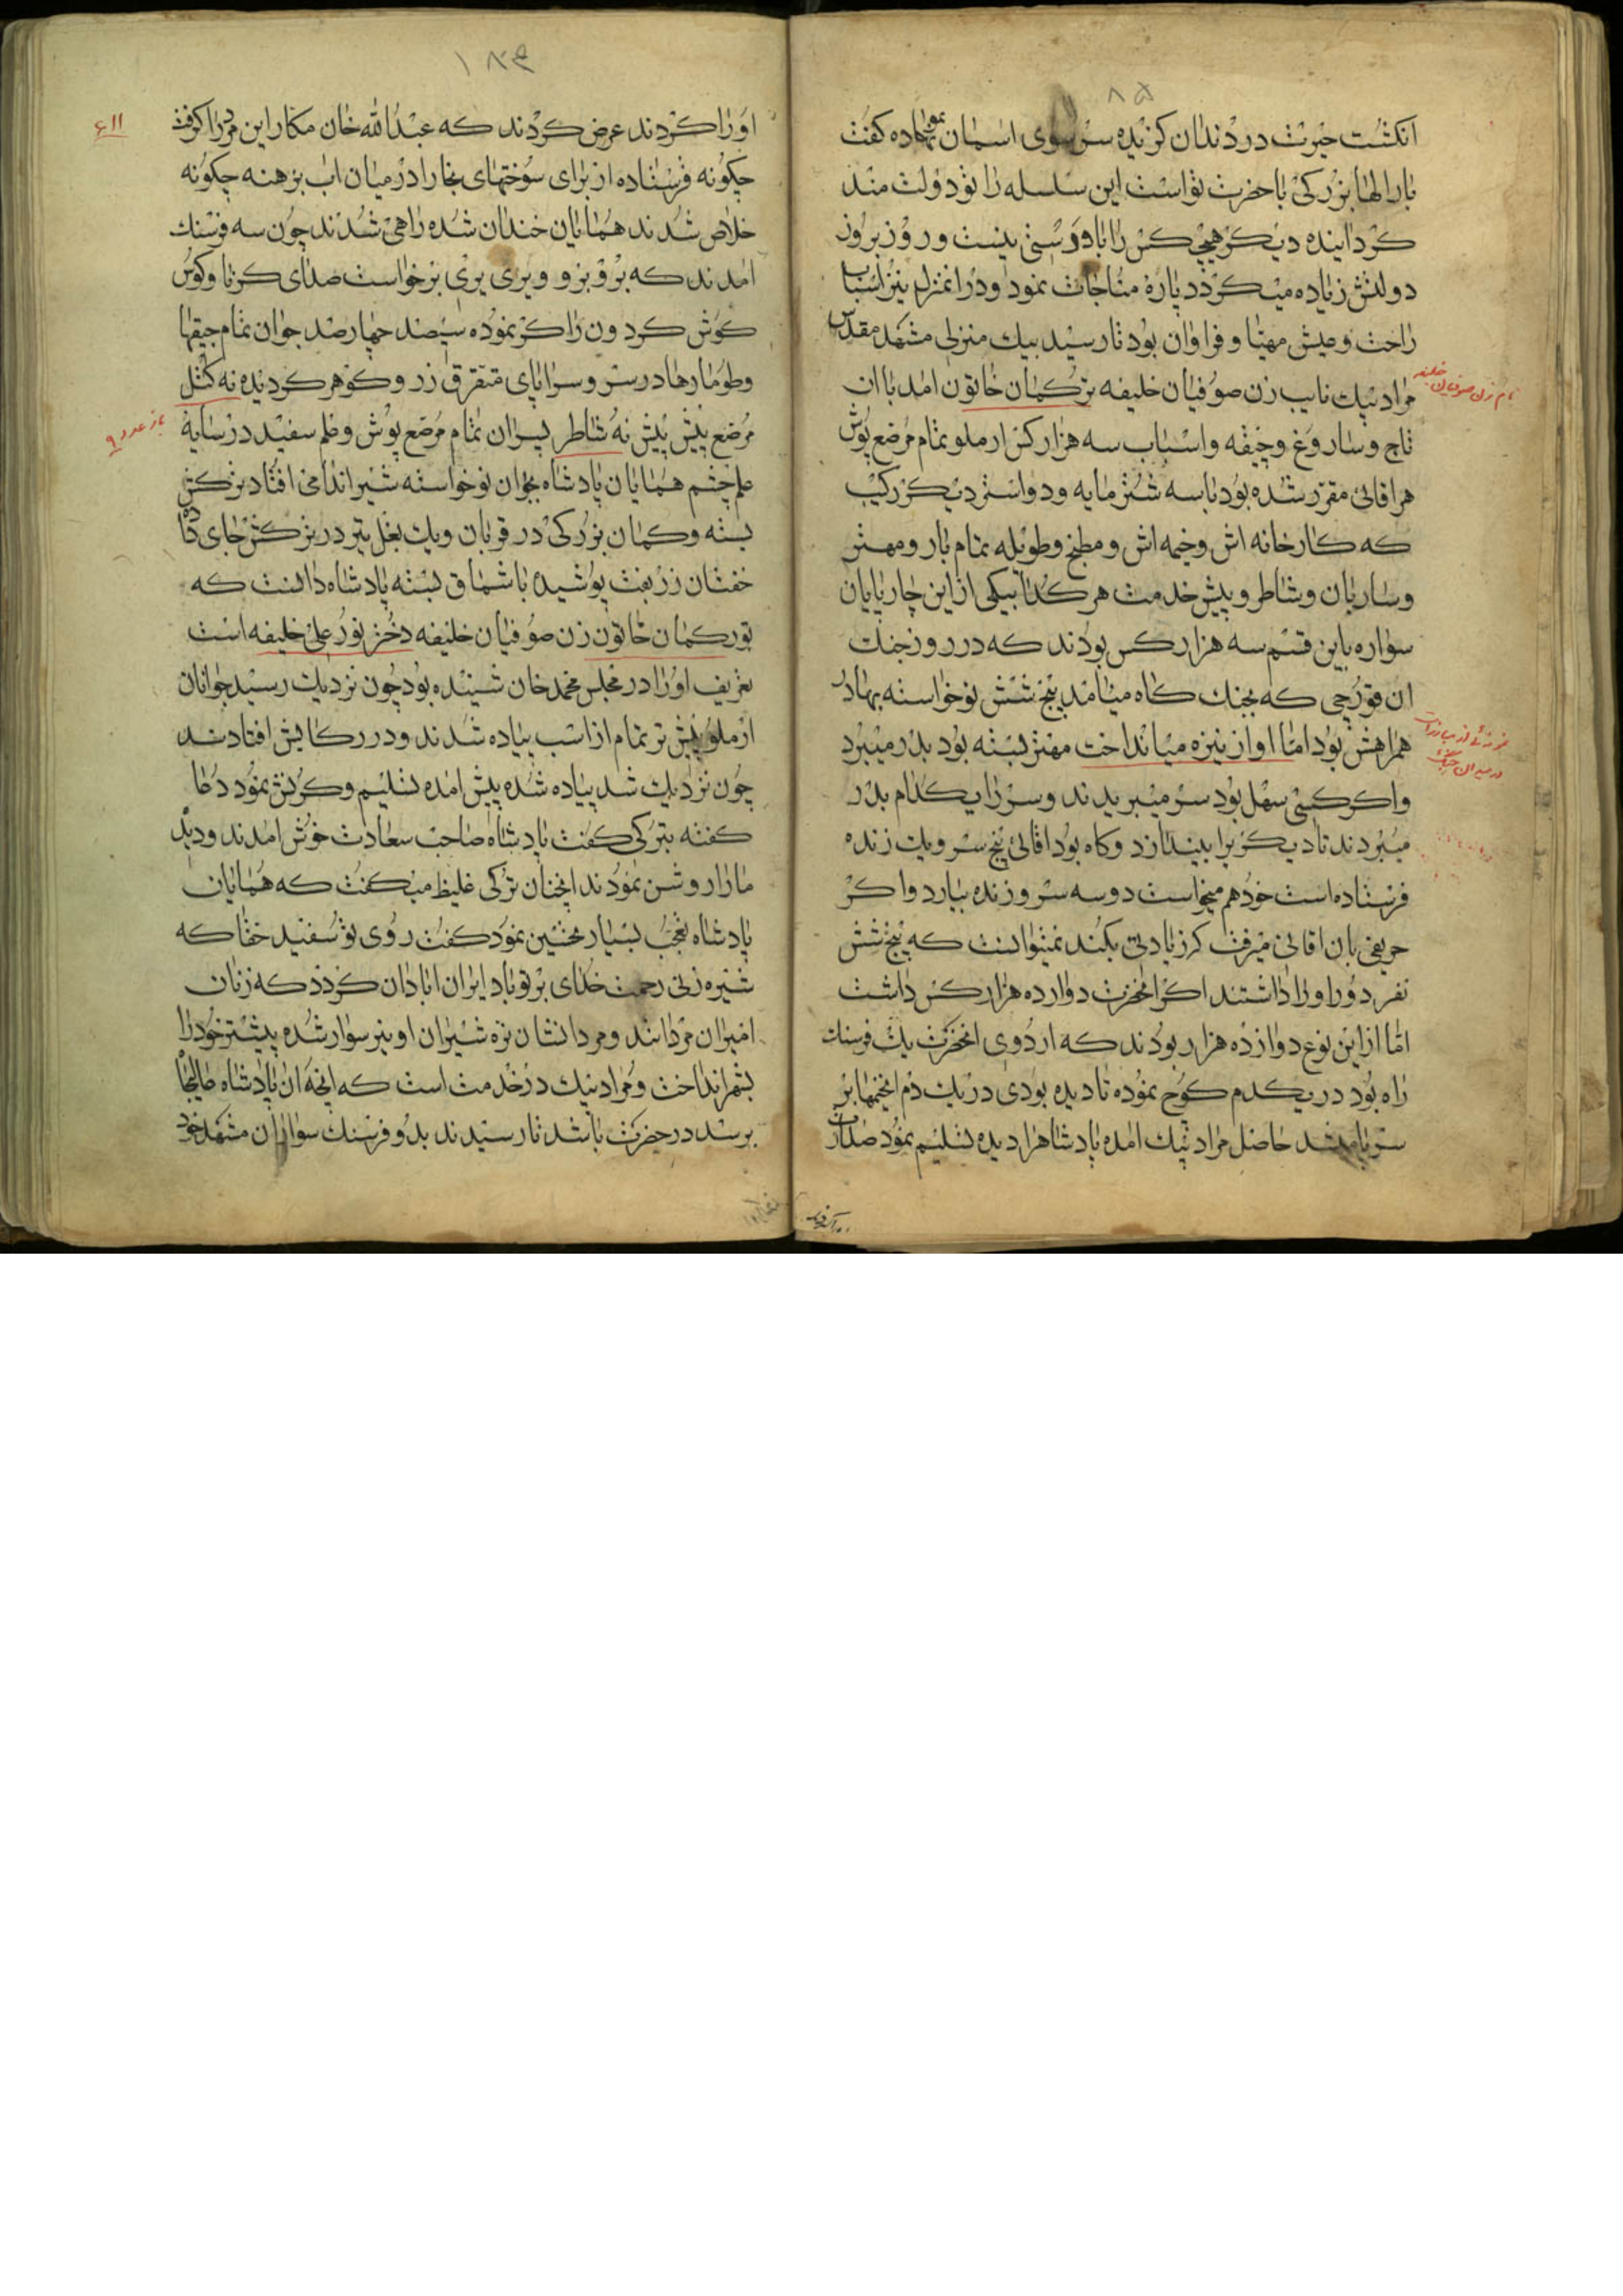 ۸۵
انکشت حیرت در دندان کزیده سر سوی اسمان نموده کفت
بار الها بزرکی با حضرت تواست این سلسله را تو دولت مند
کردانیده دیکر هیچ کس را با دوستی نیست و روز بروز
دولتش زیاده میکردد پاره مناجات نمود و در انمنزل نیز اسباب
راحت و عیش مهیا و فراوان بود تا رسید بیک منزلی مشهد مقدس
مراد بیک نایب زن صوفیان خلیفه ترکمان خاتون امد با ان
نام زن صوفیان خلیفه
تاج و سار وغ و جیقه و اسباب سه هزار کس ارملو تمام مرصع پوش
هر اقائی مقرر شده بود با سه شتر مایه و دو استر دیکر رکیب
که کارخانه اش و خیمه اش و مطبخ و طویله تمام بار و مهتر
و ساربان و شاطر و پیش خدمت هر کدام بیکی از این چارپایان
سواره باین قسم سه هزار کس بودند که در روز جنک
ان قورچی که بجنک کاه میامد پنج شش نوخواسته بهادر
همراهش بود اما او از نیزه میانداخت مهتر بسته بود بدر میبرد
و اکر کسی سهل بود سر میبریدند و سر را یکدام بدر
میبردند تا دیکریرا بیندازد و کاه بود اقائی پنج سر و یک زنده
فرستاده است خود هم میخواست دو سه سر و زنده بیارد و اکر
حریفی بان اقائی میرفت کر زیادتی بکند نمیتوانست که پنج شش
نفر دور او را داشتند اکر انحضرت دوازده هزار کس داشت
اما از این نوع دوازده هزار بودند که اردوی انحضرت یک فرسنک
راه بود در یکدم کوچ نموده تا دیده بودی در یک دم انخیمها بر
سر پا میشد حاصل مراد بیک امده پادشاهرا دیده تسلیم نمود صدای
۱۸۴
او را کردند عرض کردند که عبدالله خان مکار این مرد را کرفت
۶۱۱
چکونه فرستاده از برای سوختهای بخارا در میان اب برهنه چکونه
خلاص شدند همایان خندان شده راهی شدند چون سه فرسنک
امدند که برو برو و یری یری برخواست صدای کرنا و کوس
کوش کردون را کر نموده سیصد چهارصد جوان تمام جیقها
و طومارها در سر و سراپای متفرق زر و کوهر کردیده نه کتل
مرصع پیش پیش نه شاطر پسران تمام مرصع پوش و علم سفید در سایه
باز عدد ۹
علم چشم همایان پادشاه بجوان نوخواسته شیر اندامی افتاد ترکش
بسته و کمان بزرکی در قربان و یک بغل تیر در ترکش جای داده
خفتان زربفت پوشیده باشماق بسته پادشاه دانست که
تورکمان خاتون زن صوفیان خلیفه دختر نور علی خلیفه است
تعریف او را در مجلس محمد خان شنیده بود چون نزدیک رسید جوانان
ارملو پیش تر تمام از اسب پیاده شدند و در رکابش افتادند
چون نزدیک شد پیاده شده پیش امده تسلیم و کرنش نمود دعا
کفته بترکی کفت پادشاه صاحب سعادت خوش امدند و دیده
مارا روشن نمودند انچنان ترکی غلیظ میکفت که همایان
پادشاه تعجب بسیار تحسین نمود کفت روی تو سفید حقا که
شیره زنی رحمت خدای بر تو باد ایران ابادان کردد که زنان
امیران مردانند و مردانشان نره شیران او نیز سوار شده پیشتر خود را
بشهر انداخت و مراد بیک در خدمت است که انچه ان پادشاه عالیجاه
برسد در حضرت باشد تا رسیدند بدو فرسنک سواران مشهد خود